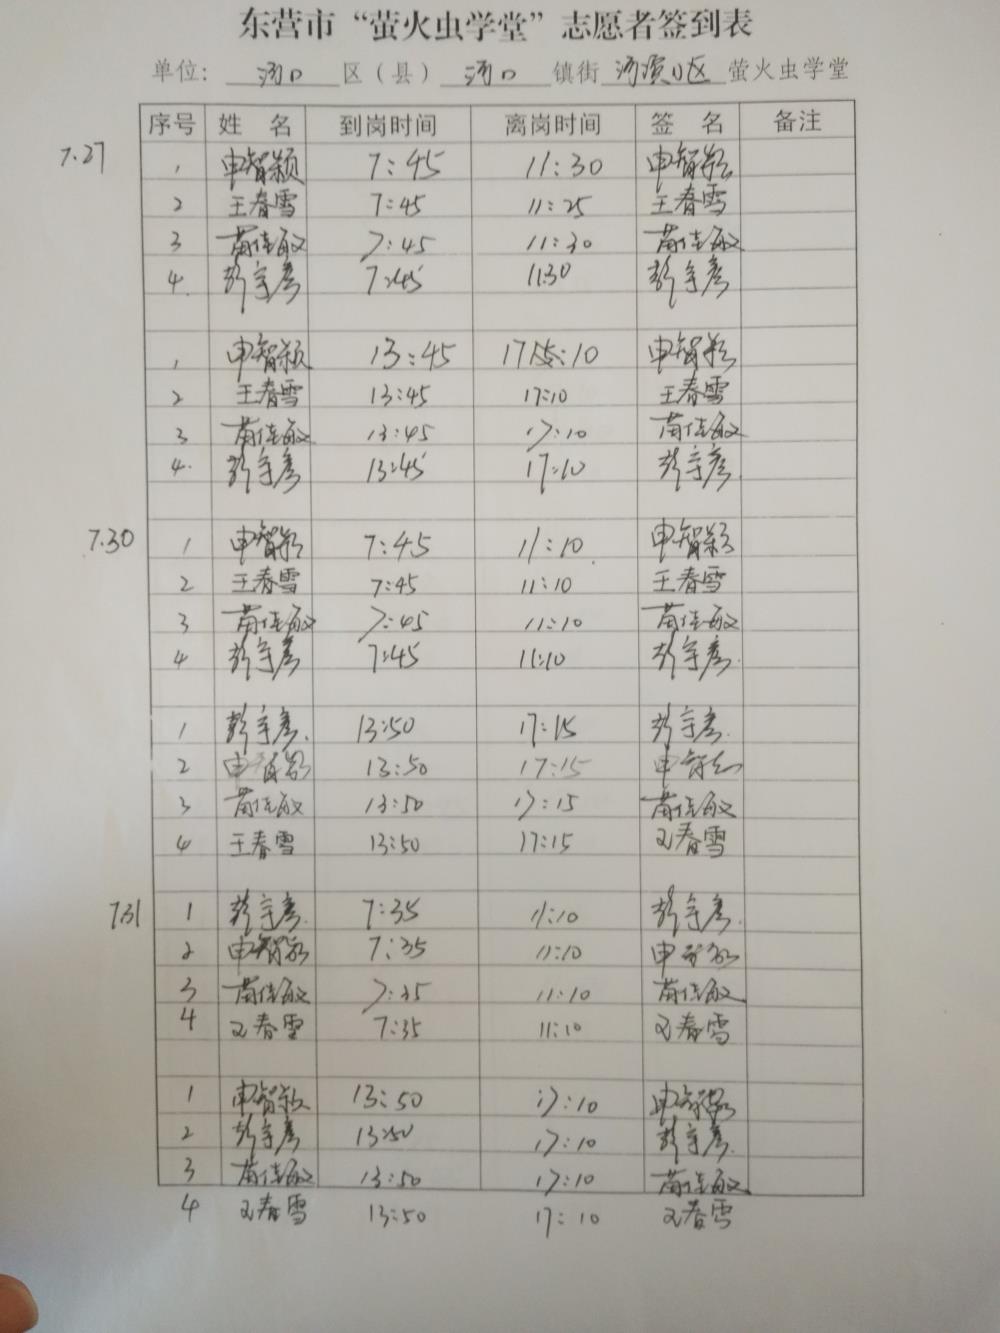 东营市“萤火虫学堂”志愿者签到表
单位： 河口 区（县） 河口 镇街 河滨 区 萤火虫学堂
序号 姓 名 到岗时间 离岗时间 签 名 备注
7.27 1 申智颖 7:45 11:30 申智颖
2 王春雪 7:45 11:25 王春雪
3 苗佳敏 7:45 11:30 苗佳敏
4. 彭宇彦 7:45 11:30 彭宇彦
1 申智颖 13:45 17:10 申智颖
2 王春雪 13:45 17:10 王春雪
3 苗佳敏 13:45 17:10 苗佳敏
4. 彭宇彦 13:45 17:10 彭宇彦.
7.30 1 申智颖 7:45 11:10 申智颖
2 王春雪 7:45 11:10 王春雪
3 苗佳敏 7:45 11:10 苗佳敏
4 彭宇彦 7:45 11:10 彭宇彦.
1 彭宇彦. 13:50 17:15 彭宇彦.
2 申智颖 13:50 17:15 申智颖
3 苗佳敏 13:50 17:15 苗佳敏
4 王春雪 13:50 17:15 王春雪
7.31 1 彭宇彦. 7:35 11:10 彭宇彦.
2 申智颖 7:35 11:10 申智颖
3 苗佳敏 7:35 11:10 苗佳敏
4 王春雪 7:35 11:10 王春雪
1 申智颖 13:50 17:10 申智颖
2 彭宇彦 13:50 17:10 彭宇彦.
3 苗佳敏 13:50 17:10 苗佳敏
4 王春雪 13:50 17:10 王春雪